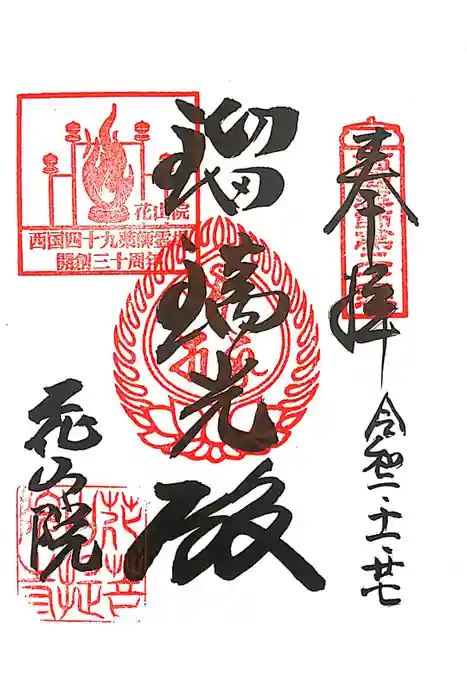 奉拝
令和二・十一・廿七
瑠璃光殿
花山院
花山院
西国四十九薬師霊場
開創三十周年